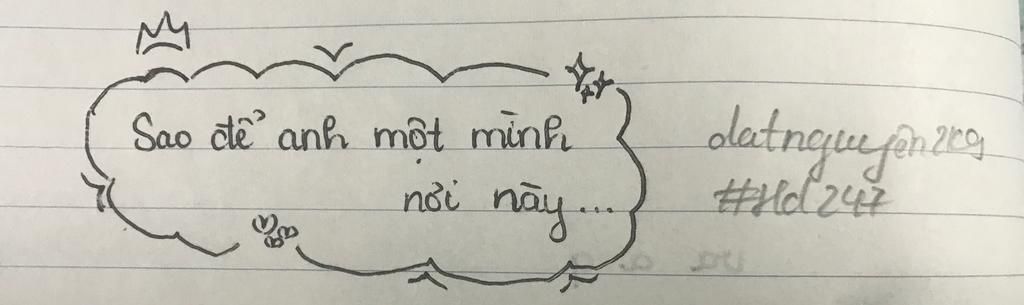 Sao để anh một mình
nơi này...
datnguyên2k9
#Hd247